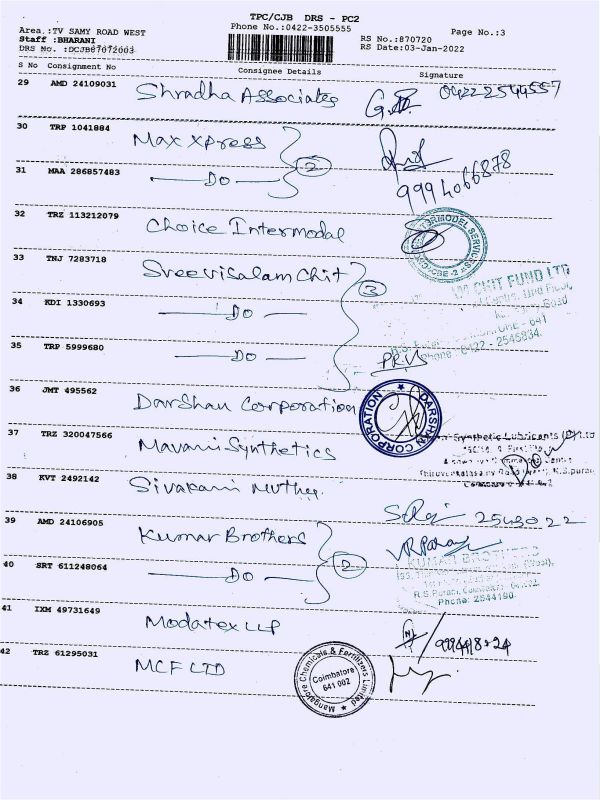 TPC/CJB DRS - PC2
Area.:TV SAMY ROAD WEST Phone No.:0422-3505555 Page No.:3
Staff :BHARANI RS No.:870720
DRS No. :DCJB87072003 RS Date:03-Jan-2022
S No Consignment No Consignee Details Signature
29 AMD 24109031 Shradha Associates 0422 2544557
30 TRP 1041884 Max Xpress
31 MAA 286857483 DO 2 9994066878
32 TRZ 113212079 Choice Intermodal
33 TNJ 7283718 Sreevisalam Chit
CHIT FUND LTD
34 KDI 1330693 DO 3
Phone : 0422 - 2545834
35 TRP 5999680 DO
36 JMT 495562 Darshan Corporation DARSHAN CORPORATION
37 TRZ 320047566 Mavani Synthetics
Synthetic Lubricants (P) Ltd
38 KVT 2492142 Sivakami Muthu
2543022
39 AMD 24106905 Kumar Brothers
KUMAR BROTHERS
40 SRT 611248064 DO 2
R.S.Puram, Coimbatore
Phone: 2544190
41 IXM 49731649 Modatex LLP
42 TRZ 61295031 MCF LTD Mangalore Chemicals & Fertilizers Limited Coimbatore 641 002